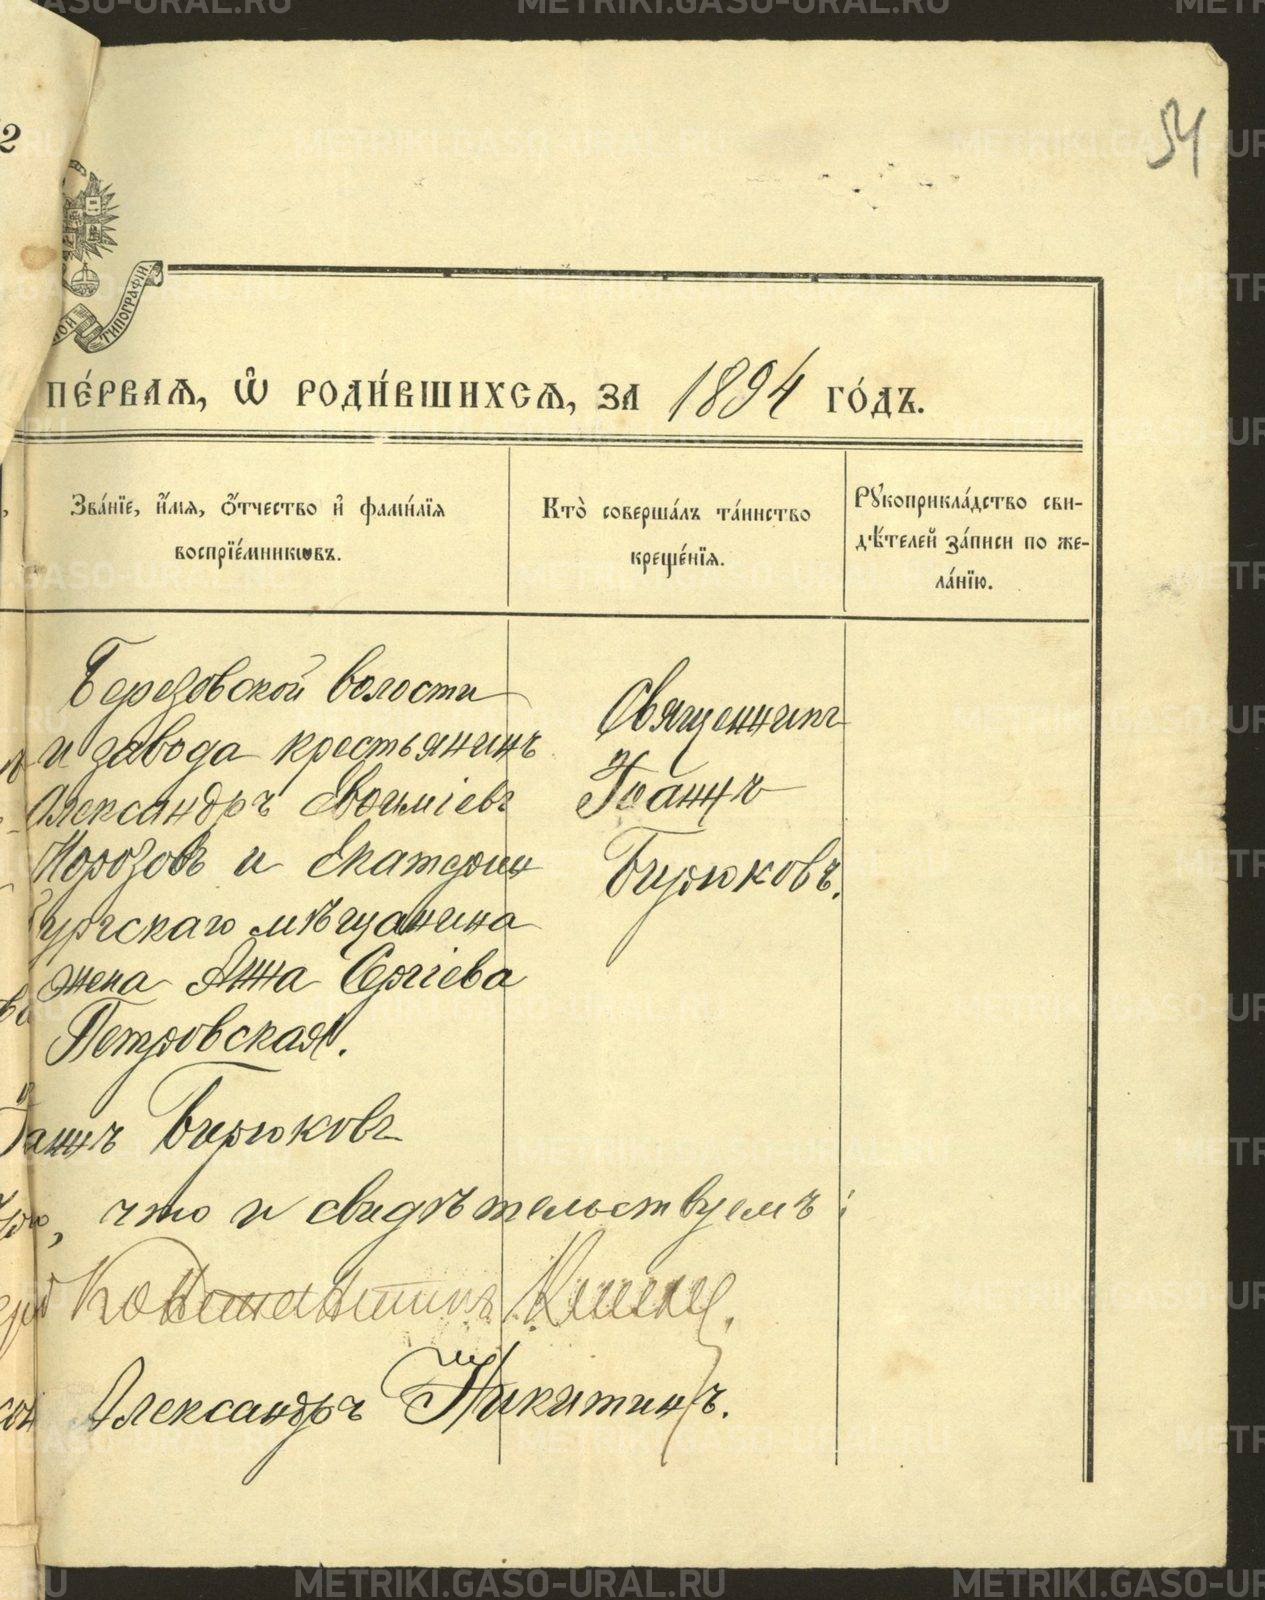 54
2
ТИПОГРАФІИ
ПЕ́РВАѦ, Ѿ РОДИ́ВШИХСѦ, ЗА 1894 ГО́ДЪ.
Зва́нїе, и҆́мѧ, ѻ҆́тчество и҆ фами́лїѧ
воспрїе́мникѡвъ.
Кто̀ соверша́лъ та́инство
креще́нїѧ.
Рꙋкоприкла́дство сви-
дѣ́телей за́писи по же-
ла́нїю.
Березовской волости
и завода крестьянинъ
Александръ Евѳиміевъ
Морозовъ и Екатерин
бургскаго мѣщанина
жена Анна Сергіева
Петровская.
Священникъ
Іоаннъ
Бирюковъ.
Іоаннъ Бирюковъ
что и свидѣтельствуемъ:
Константинъ
Александръ Никитинъ.
METRIKI.GASO-URAL.RU